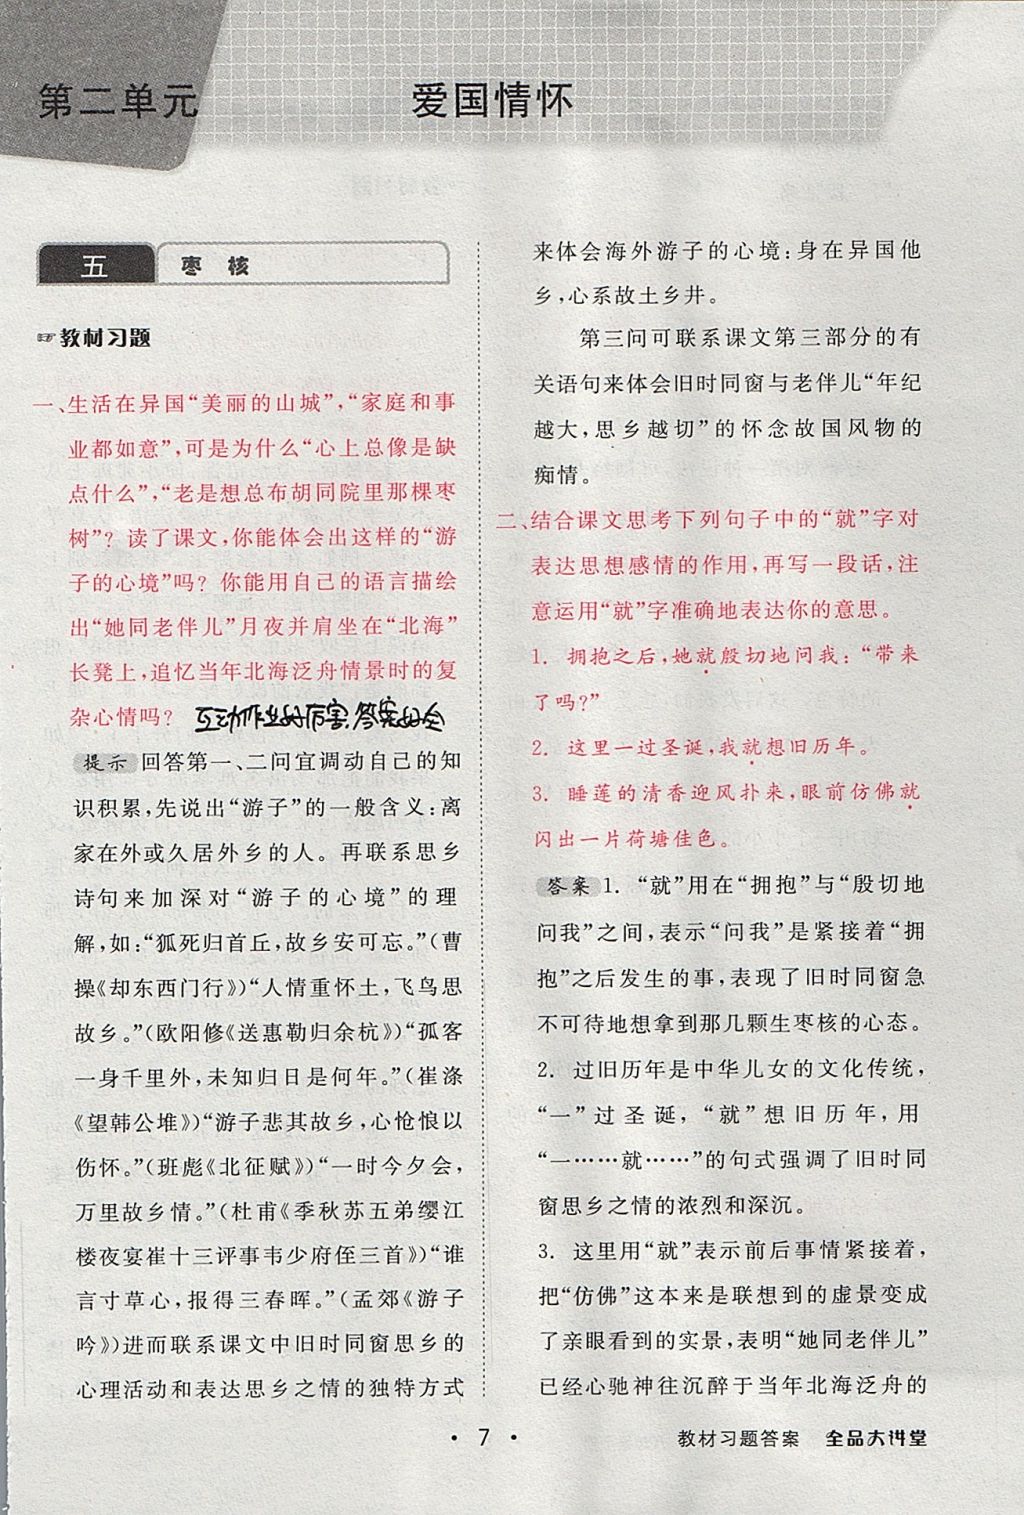 第二单元
爱国情怀
五
枣 核
☞教材习题
一、生活在异国“美丽的山城”，“家庭和事
业都如意”，可是为什么“心上总像是缺
点什么”，“老是想总布胡同院里那棵枣
树”？读了课文，你能体会出这样的“游
子的心境”吗？你能用自己的语言描绘
出“她同老伴儿”月夜并肩坐在“北海”
长凳上，追忆当年北海泛舟情景时的复
杂心情吗？
互动作业好厉害,答案好全
提示 回答第一、二问宜调动自己的知
识积累，先说出“游子”的一般含义：离
家在外或久居外乡的人。再联系思乡
诗句来加深对“游子的心境”的理
解，如：“狐死归首丘，故乡安可忘。”（曹
操《却东西门行》）“人情重怀土，飞鸟思
故乡。”（欧阳修《送惠勤归余杭》）“孤客
一身千里外，未知归日是何年。”（崔涤
《望韩公堆》）“游子悲其故乡，心怆悢以
伤怀。”（班彪《北征赋》）“一时今夕会，
万里故乡情。”（杜甫《季秋苏五弟缨江
楼夜宴崔十三评事韦少府侄三首》）“谁
言寸草心，报得三春晖。”（孟郊《游子
吟》）进而联系课文中旧时同窗思乡的
心理活动和表达思乡之情的独特方式
来体会海外游子的心境：身在异国他
乡，心系故土乡井。
第三问可联系课文第三部分的有
关语句来体会旧时同窗与老伴儿“年纪
越大，思乡越切”的怀念故国风物的
痴情。
二、结合课文思考下列句子中的“就”字对
表达思想感情的作用，再写一段话，注
意运用“就”字准确地表达你的意思。
1. 拥抱之后，她就殷切地问我：“带来
了吗？”
2. 这里一过圣诞，我就想旧历年。
3. 睡莲的清香迎风扑来，眼前仿佛就
闪出一片荷塘佳色。
答案 1. “就”用在“拥抱”与“殷切地
问我”之间，表示“问我”是紧接着“拥
抱”之后发生的事，表现了旧时同窗急
不可待地想拿到那几颗生枣核的心态。
2. 过旧历年是中华儿女的文化传统，
“一”过圣诞，“就”想旧历年，用
“一……就……”的句式强调了旧时同
窗思乡之情的浓烈和深沉。
3. 这里用“就”表示前后事情紧接着，
把“仿佛”这本来是联想到的虚景变成
了亲眼看到的实景，表明“她同老伴儿”
已经心驰神往沉醉于当年北海泛舟的
· 7 ·
教材习题答案 全品大讲堂